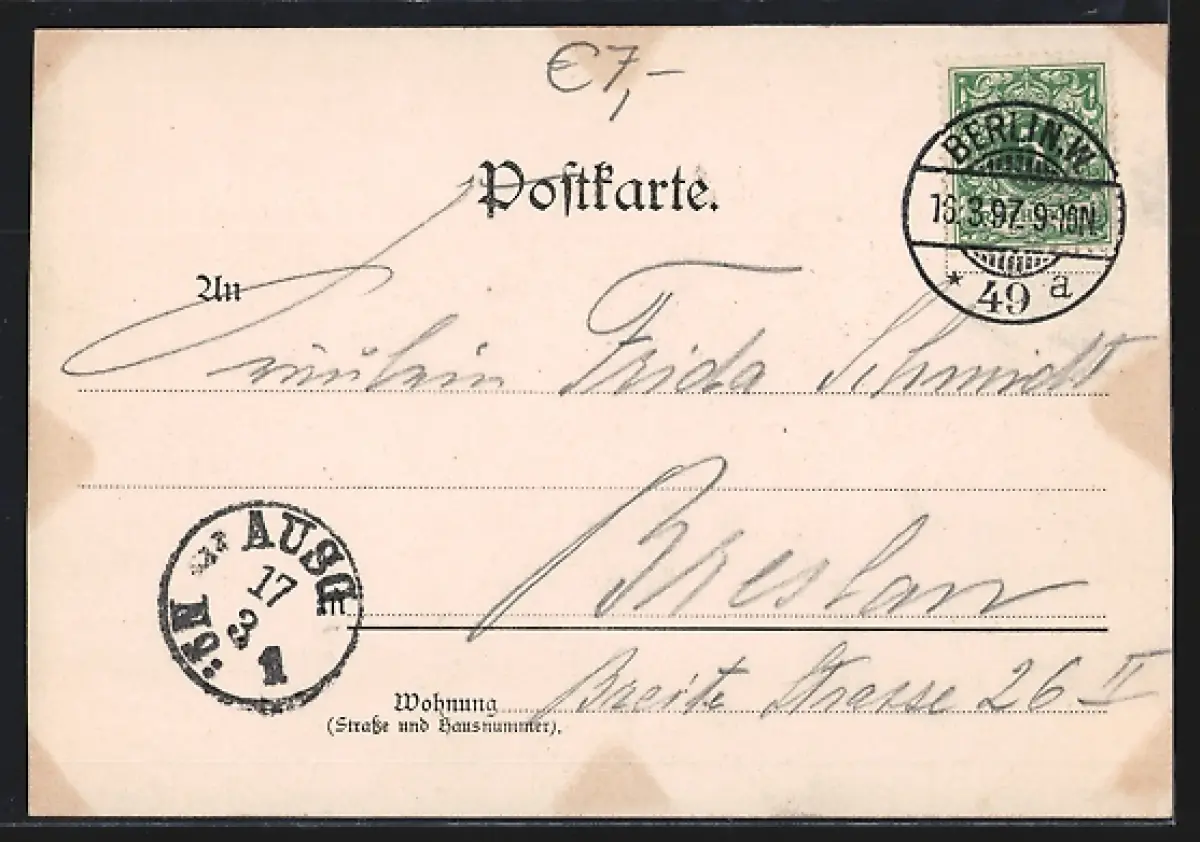 €7,-
Postkarte.
BERLIN.W.
3.97. 9-10N.
* 49 a
An
Fräulein Frida Schmidt
Breslau
AUSG
17
3
1
in
Wohnung
(Straße und Hausnummer).
Breite Strasse 26 II